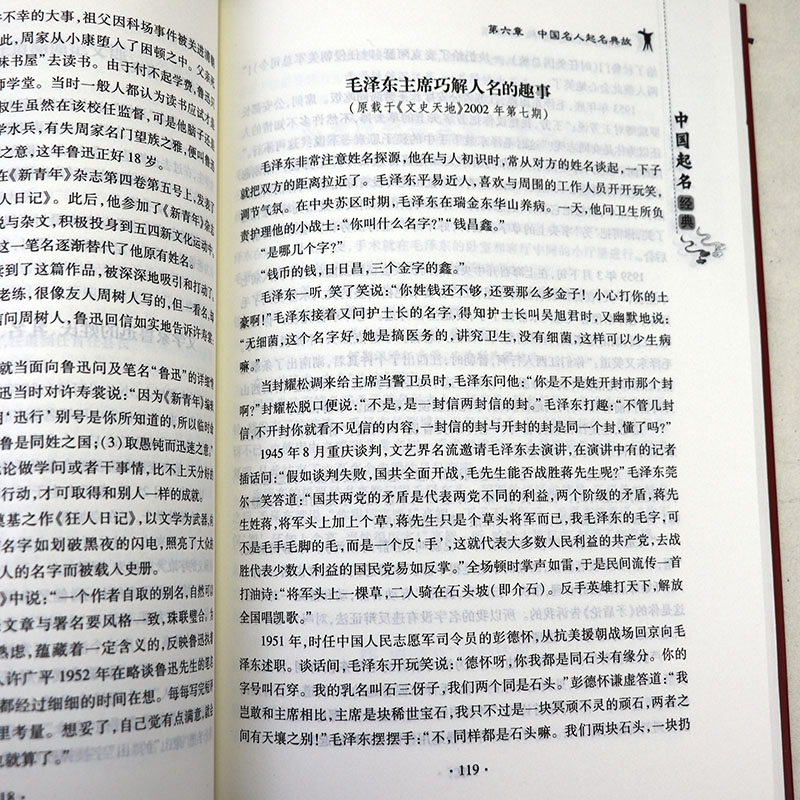 不幸的大事，祖父因科场事件被关进
此，周家从小康堕人了困顿之中。父亲
味书屋”去读书。由于付不起学费，鲁迅
师学堂。当时一般人都认为读书应试才是
叔生虽然在该校任监督，可是他脑子还是
学水兵，有失周家名门望族之雅，便叫鲁迅
之意，这年鲁迅正好 18 岁。
在《新青年》杂志第四卷第五号上，发表了
人日记》。此后，他参加了《新青年》杂志
说与杂文，积极投身到五四新文化运动中
这一笔名逐渐替代了他原有姓名。
读到了这篇作品，被深深地吸引和打动了。
老练，很像友人周树人写的，但一看名，却
信问周树人，鲁迅回信如实地告诉许寿裳：
就当面向鲁迅问及笔名“鲁迅”的详细情
迅当时对许寿裳说：“因为《新青年》编辑
用‘迅行’别号是你所知道的，所以临时命
鲁是同姓之国；(3)取愚钝而迅速之意。”
论做学问或者干事情，比不上天分好的
行动，才可取得和别人一样的成就。
奠基之作《狂人日记》，以文学为武器，向
名字如划破黑夜的闪电，照亮了大众的
人的名字而被载人史册。
》中说：“一个作者自取的别名，自然可以
文章与署名要风格一致，珠联璧合。为
熟虑，蕴藏着一定含义的，反映鲁迅执着
人许广平 1952 年在略谈鲁迅先生的笔名
都经过细细的时间在想。每每写完短评
里考量。想妥了，自己觉有点满意，就会
也就算了。”
18 ·
第六章 中国名人起名典故
毛泽东主席巧解人名的趣事
(原载于《文史天地》2002 年第七期)
毛泽东非常注意姓名探源，他在与人初识时，常从对方的姓名谈起，一下子
就把双方的距离拉近了。毛泽东平易近人，喜欢与周围的工作人员开开玩笑，
调节气氛。在中央苏区时期，毛泽东在瑞金东华山养病。一天，他问卫生所负
责护理他的小战士：“你叫什么名字？”“钱昌鑫。”
“是哪几个字？”
“钱币的钱，日日昌，三个金字的鑫。”
毛泽东一听，笑了笑说：“你姓钱还不够，还要那么多金子！小心打你的土
豪啊！”毛泽东接着又问护士长的名字，得知护士长叫吴旭君时，又幽默地说：
“无细菌，这个名字好，她是搞医务的，讲究卫生，没有细菌，这样可以少生病
嘛。”
当封耀松调来给主席当警卫员时，毛泽东问他：“你是不是姓开封市那个封
啊？”封耀松脱口便说：“不是，是一封信两封信的封。”毛泽东打趣：“不管几封
信，不开封你就看不见信的内容，一封信的封与开封的封是同一个封，懂了吗？”
1945 年 8 月重庆谈判，文艺界名流邀请毛泽东去演讲，在演讲中有的记者
插话问：“假如谈判失败，国共全面开战，毛先生能否战胜蒋先生呢？”毛泽东莞
尔一笑答道：“国共两党的矛盾是代表两党不同的利益，两个阶级的矛盾，蒋先
生姓蒋，将军头上加上个草，蒋先生只是个草头将军而已，我毛泽东的毛字，可
不是毛手毛脚的毛，而是一个反‘手’，这就代表大多数人民利益的共产党，去战
胜代表少数人利益的国民党易如反掌。”全场顿时掌声如雷，于是民间流传一首
打油诗：“将军头上一棵草，二人骑在石头坡（即介石）。反手英雄打天下，解放
全国唱凯歌。”
1951 年，时任中国人民志愿军司令员的彭德怀，从抗美援朝战场回京向毛
泽东述职。谈话间，毛泽东开玩笑说：“德怀呀，你我都是同石头有缘分。你的
字号叫石穿。我的乳名叫石三伢子，我们两个同是石头。”彭德怀谦虚答道：“我
岂敢和主席相比，主席是块稀世宝石，我只不过是一块冥顽不灵的顽石，两者之
间有天壤之别！”毛泽东摆摆手：“不，同样都是石头嘛。我们两块石头，一块扔
· 119 ·
中国起名经典